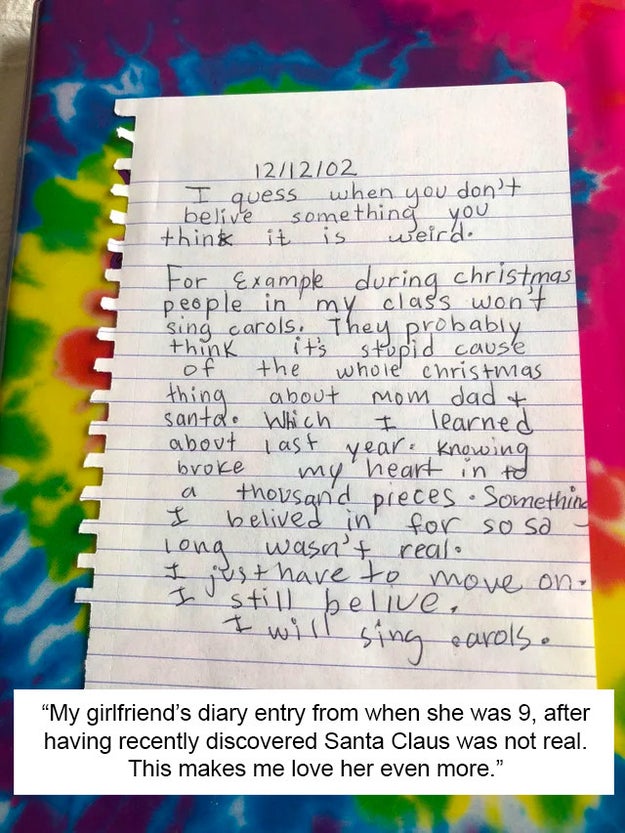 12/12/02
I guess when you don't
belive something you
think it is weird.
For Example during christmas
people in my class won't
sing carols. They probably
think it's stupid cause
of the whole christmas
thing about mom dad +
santa. Which I learned
about last year. Knowing
broke my heart in to
a thousand pieces. Something
I belived in for so so
long wasn't real.
I just have to move on.
I still belive.
I will sing carols.
“My girlfriend’s diary entry from when she was 9, after
having recently discovered Santa Claus was not real.
This makes me love her even more.”